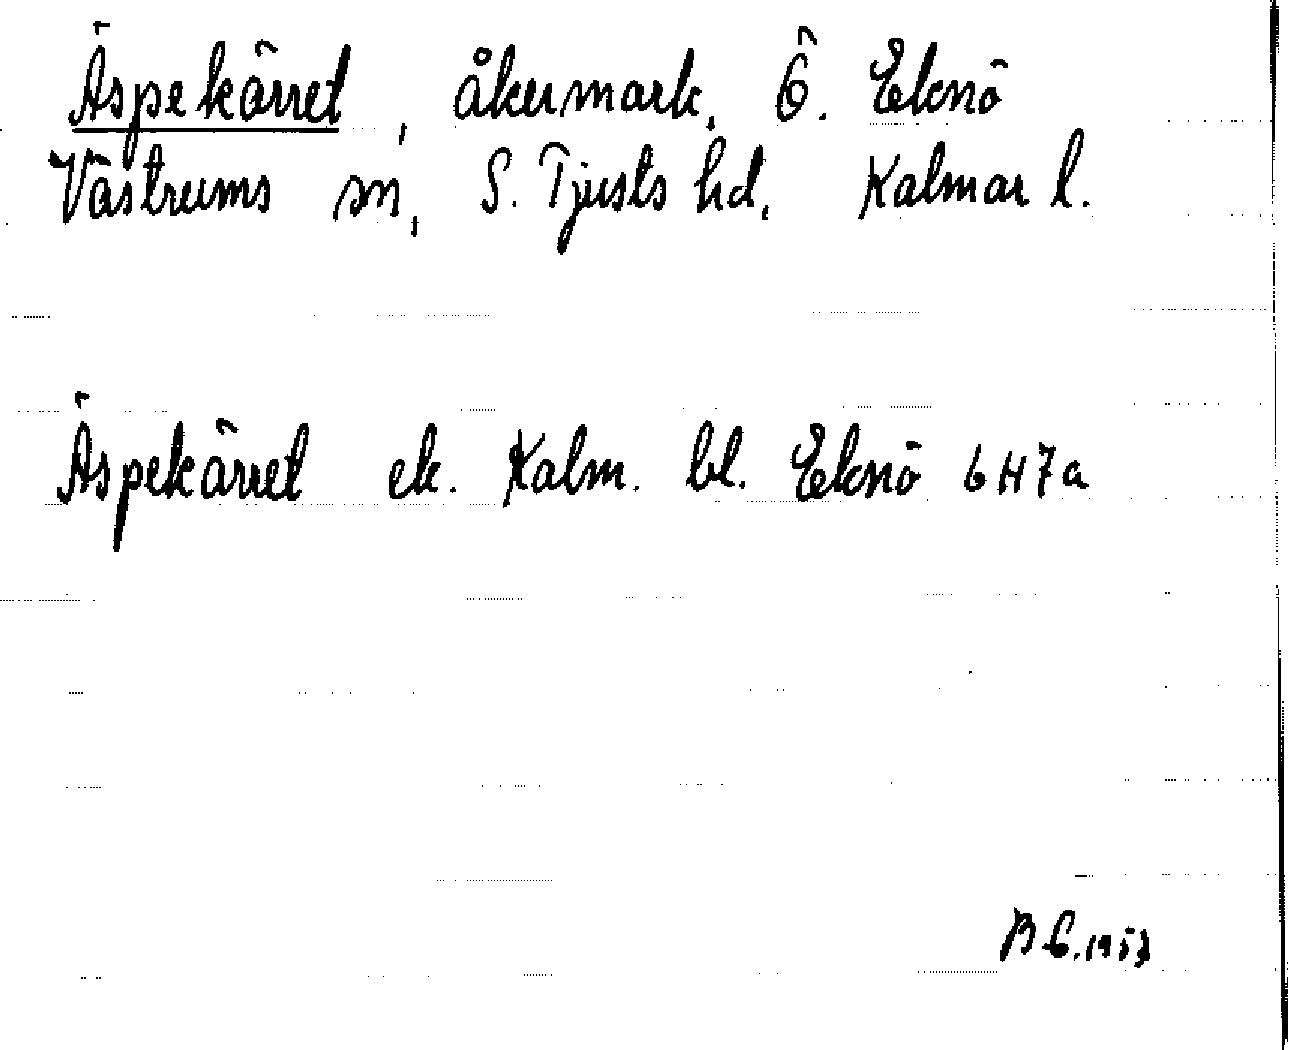 Äspekärret, åkermark, Ö. Eknö
Västrums sn, S. Tjusts hd, Kalmar l.
Äspekärret ek. Kalm. bl. Eknö 6H7a